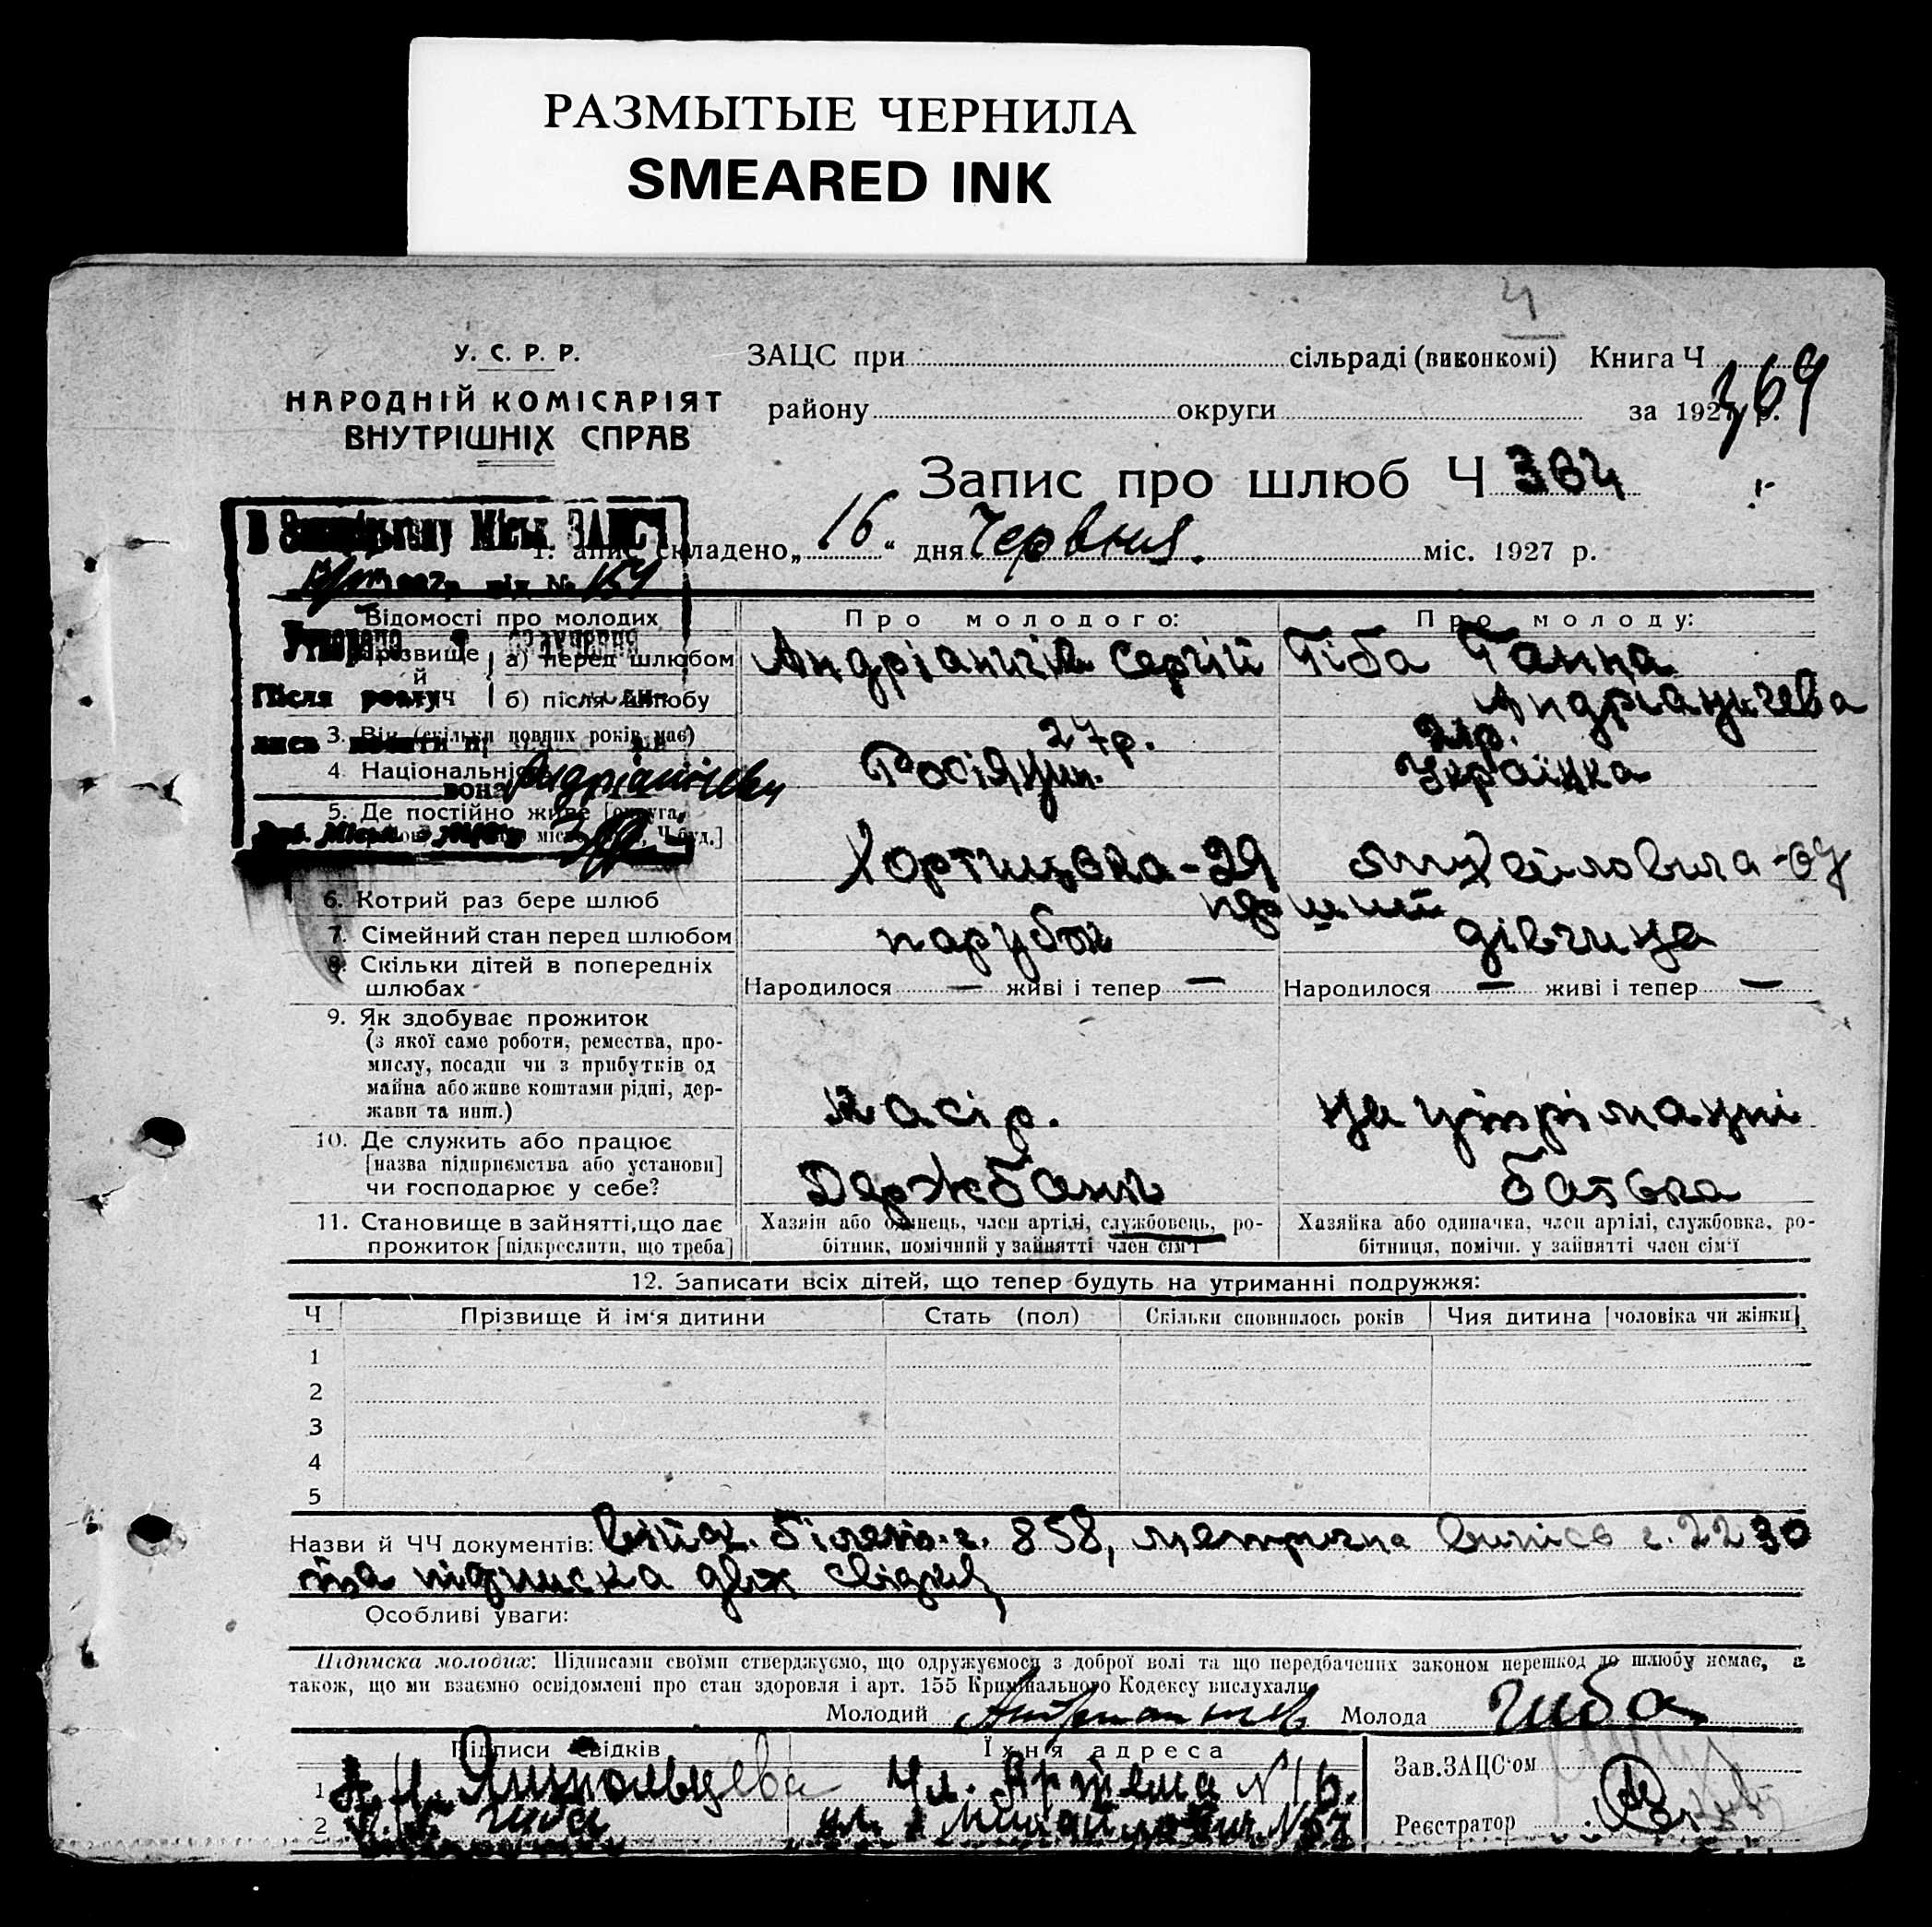 РАЗМЫТЫЕ ЧЕРНИЛА
SMEARED INK
4
У. С. Р. Р.
НАРОДНІЙ КОМІСАРІЯТ
ВНУТРІШНІХ СПРАВ
ЗАЦС при сільраді (виконкомі) Книга Ч
району округи за 1927 р.
364
Запис про шлюб Ч 364
складено „16“ дня Червня. міс. 1927 р.
В Міськ ЗАГСІ
№ 154
Утворено
Після розлуч
вона Андріанічеву
Відомості про молодих
Про молодого:
Про молоду:
Прізвище й
а) перед шлюбом
Андріаничів Сергій
Гіба Ганна
б) після шлюбу
Андріаничева
3. Вік (скільки повних років має)
27р.
21р.
4. Національність
Росіянин.
Українка
5. Де постійно живе [округа, Ч буд.]
Хортицька-29
Михайловила-67
6. Котрий раз бере шлюб
перший
7. Сімейний стан перед шлюбом
парубок
дівчина
8. Скільки дітей в попередніх
шлюбах
Народилося — живі і тепер —
Народилося — живі і тепер —
9. Як здобуває прожиток
(з якої саме роботи, ремества, про-
мислу, посади чи з прибутків од
майна або живе коштами рідні, дер-
жави та инш.)
касір.
на утріманні
10. Де служить або працює
[назва підприємства або установи]
чи господарює у себе?
Держбанк
батька
11. Становище в зайнятті, що дає
прожиток [підкреслити, що треба]
Хазяїн або одинець, член артілі, службовець, ро-
бітник, помічний у зайнятті член сім‘ї
Хазяйка або одиначка, член артілі, службовка, ро-
бітниця, помічн. у зайнятті член сім‘ї
12. Записати всіх дітей, що тепер будуть на утриманні подружжя:
Ч Прізвище й ім‘я дитини Стать (пол) Скільки сповнилось років Чия дитина [чоловіка чи жінки]
1
2
3
4
5
Назви й ЧЧ документів: війск. білет. ч. 858, метрична випісь ч. 2230
та підписка двох свідків
Особливі уваги:
Підписка молодих: Підписами своїми стверджуємо, що одружуємося з доброї волі та що передбачених законом перешкод до шлюбу немає, а
також, що ми взаємно освідомлені про стан здоровля і арт. 155 Кримінального Кодексу вислухали
Молодий
Молода Гиба
Підписи свідків
Їхня адреса
Зав. ЗАЦС‘ом
1 ул. Артема N 16.
2 Гиба ул. N 67
Реєстратор